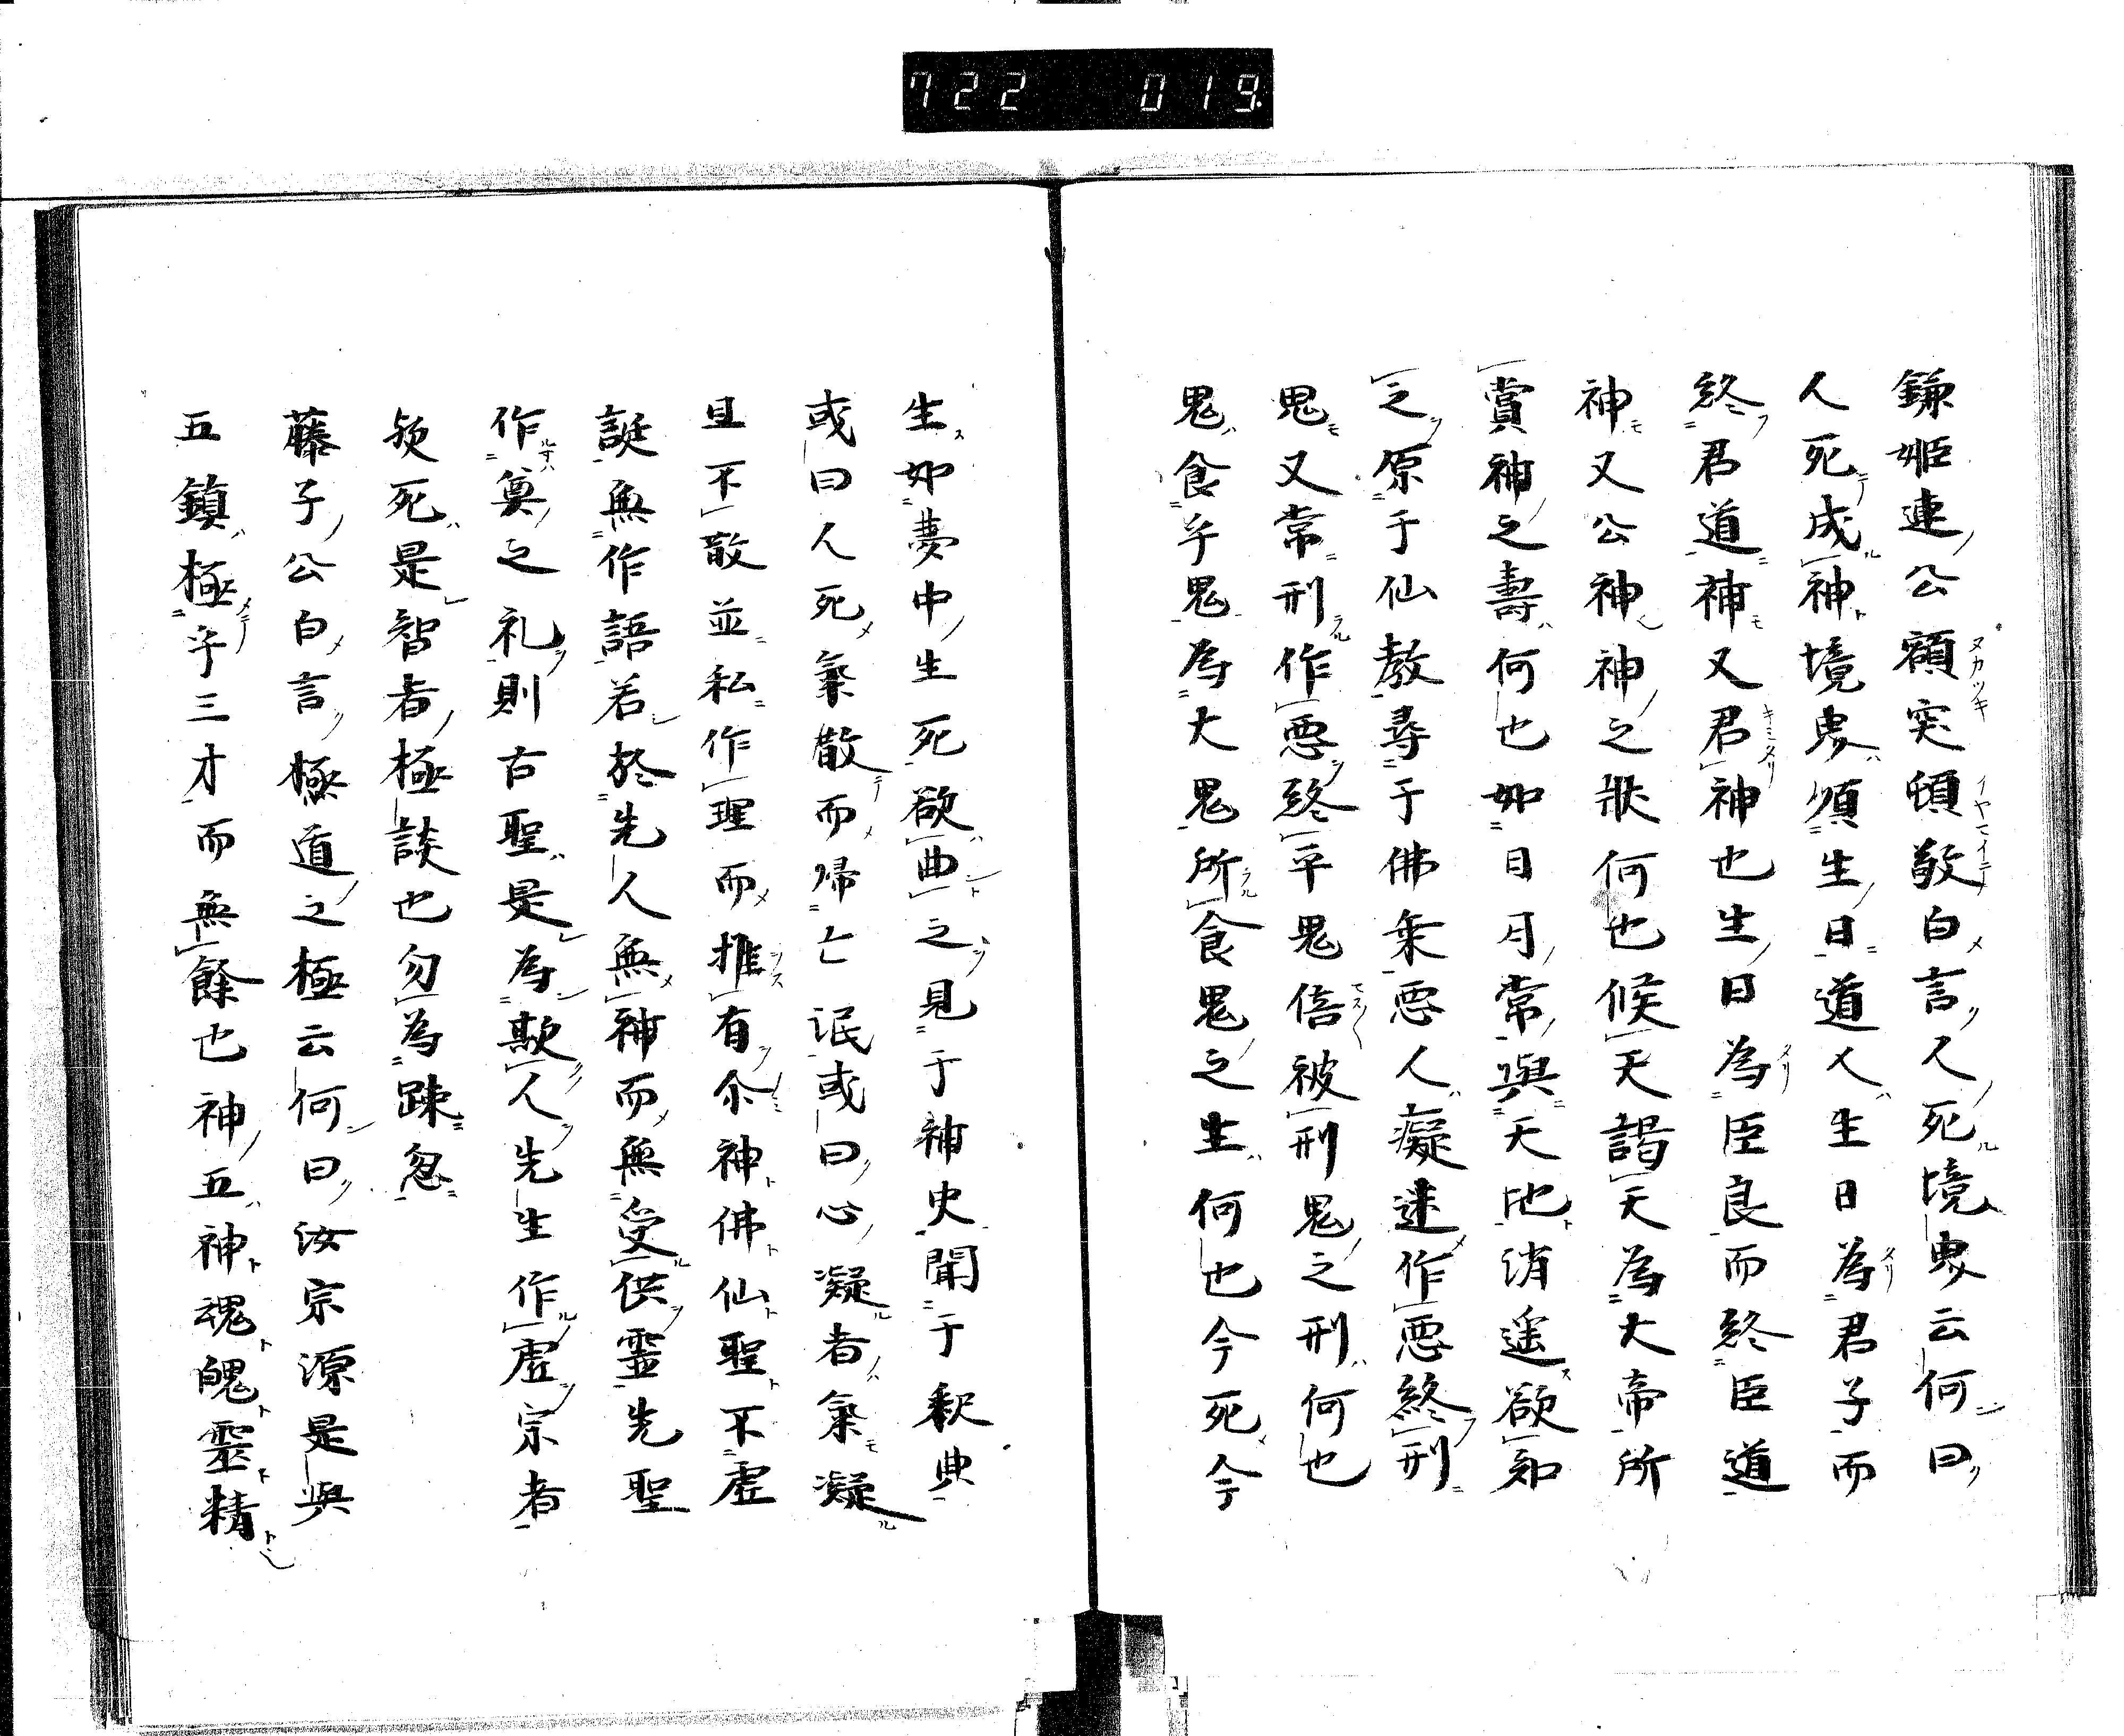 722 019.
鎌姫連公額突頓敬白言人死境㒵云何曰
人死成神境㒵須生日道人生日為君子而
終君道神又君神也生日為臣良而終臣道
神又公神神之狀何也候天謁天為大帝所
賞神之壽何也如日月常與天地消遥欲知
之原于仙教尋于佛乗悪人癡迷作悪終刑
鬼又常刑作悪終平鬼倍被刑鬼之刑何也
鬼食乎鬼為大鬼所食鬼之生何也今死今
生如夢中生死欲曲之見于神史聞于釈典
或曰人死氣散而帰亡泯或曰心凝者氣凝
且不散並私作理而推有尒神佛仙聖不虚
誕無作語若於先人無神而無受供霊先聖
作奠之礼則古聖是為欺人先生作虚宗者
須死是智者極談也勿為踈忽
藤子公白言極道之極云何曰汝宗源是與
五鎮極乎三才而無餘也神五神魂魄霊精